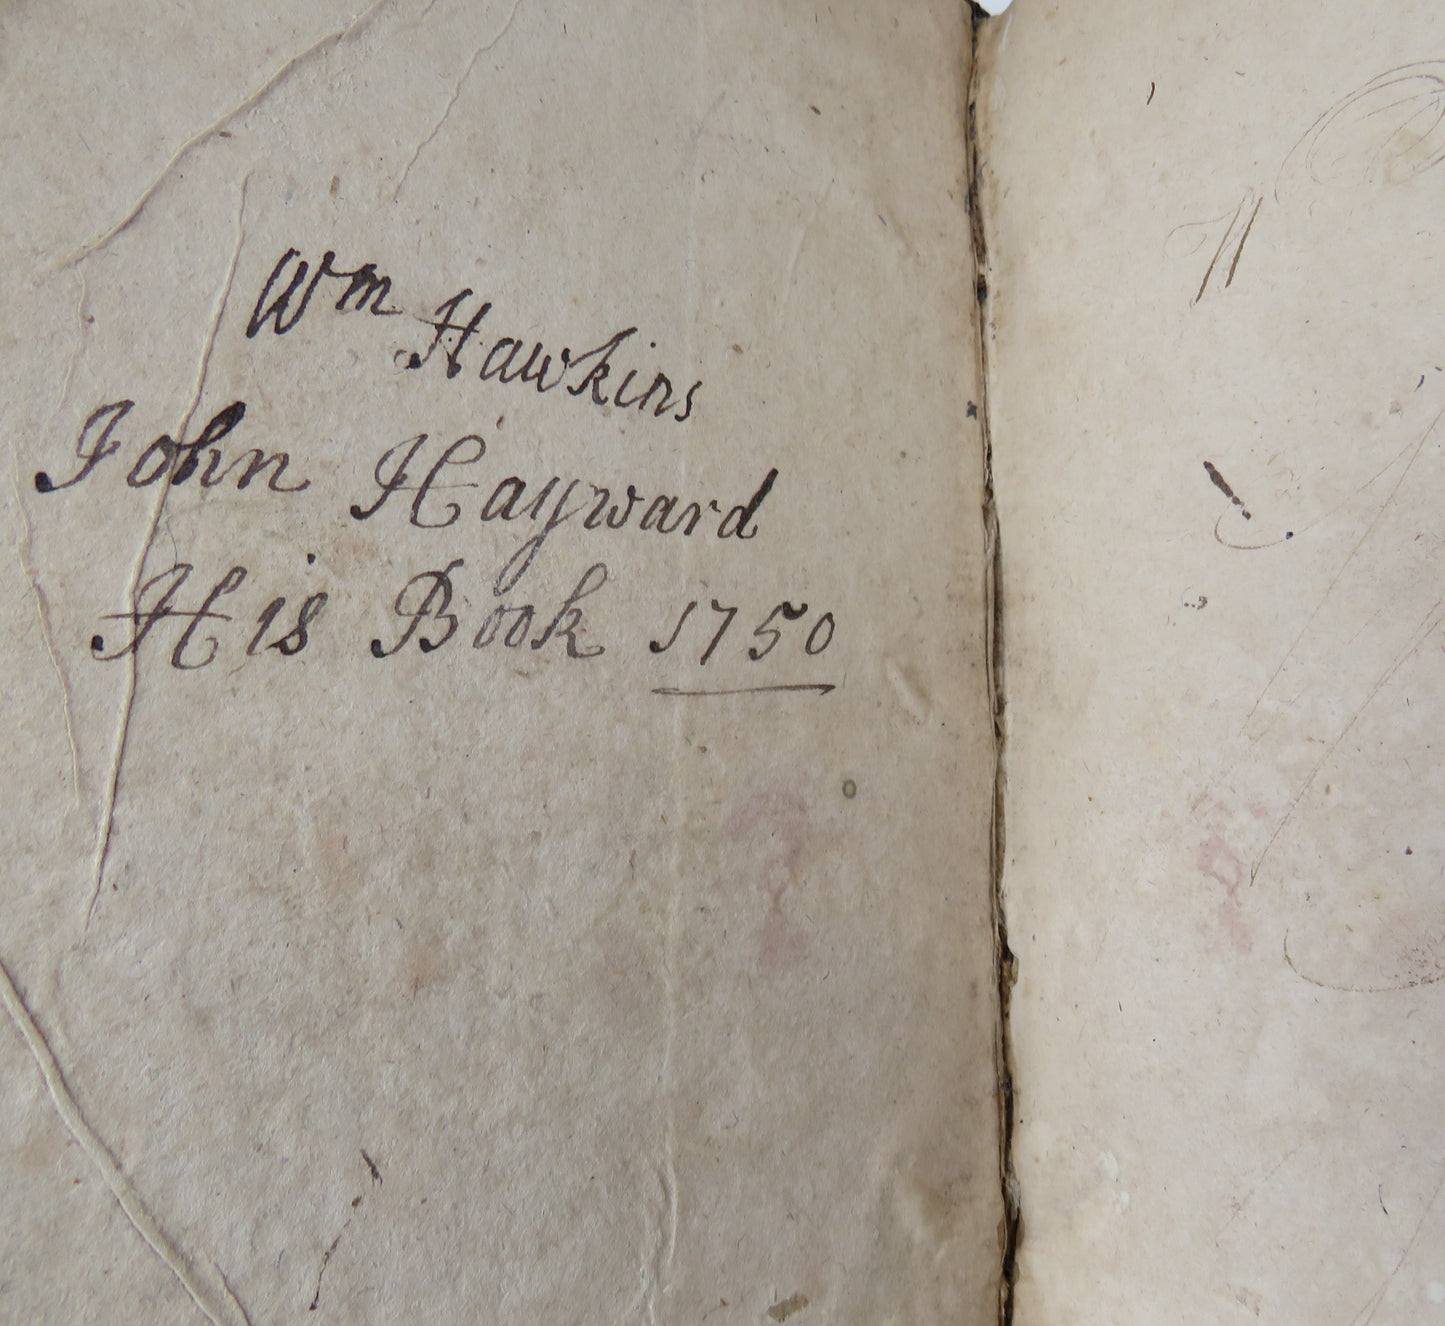 Wm Hawkins
John Hayward
His Book 1750